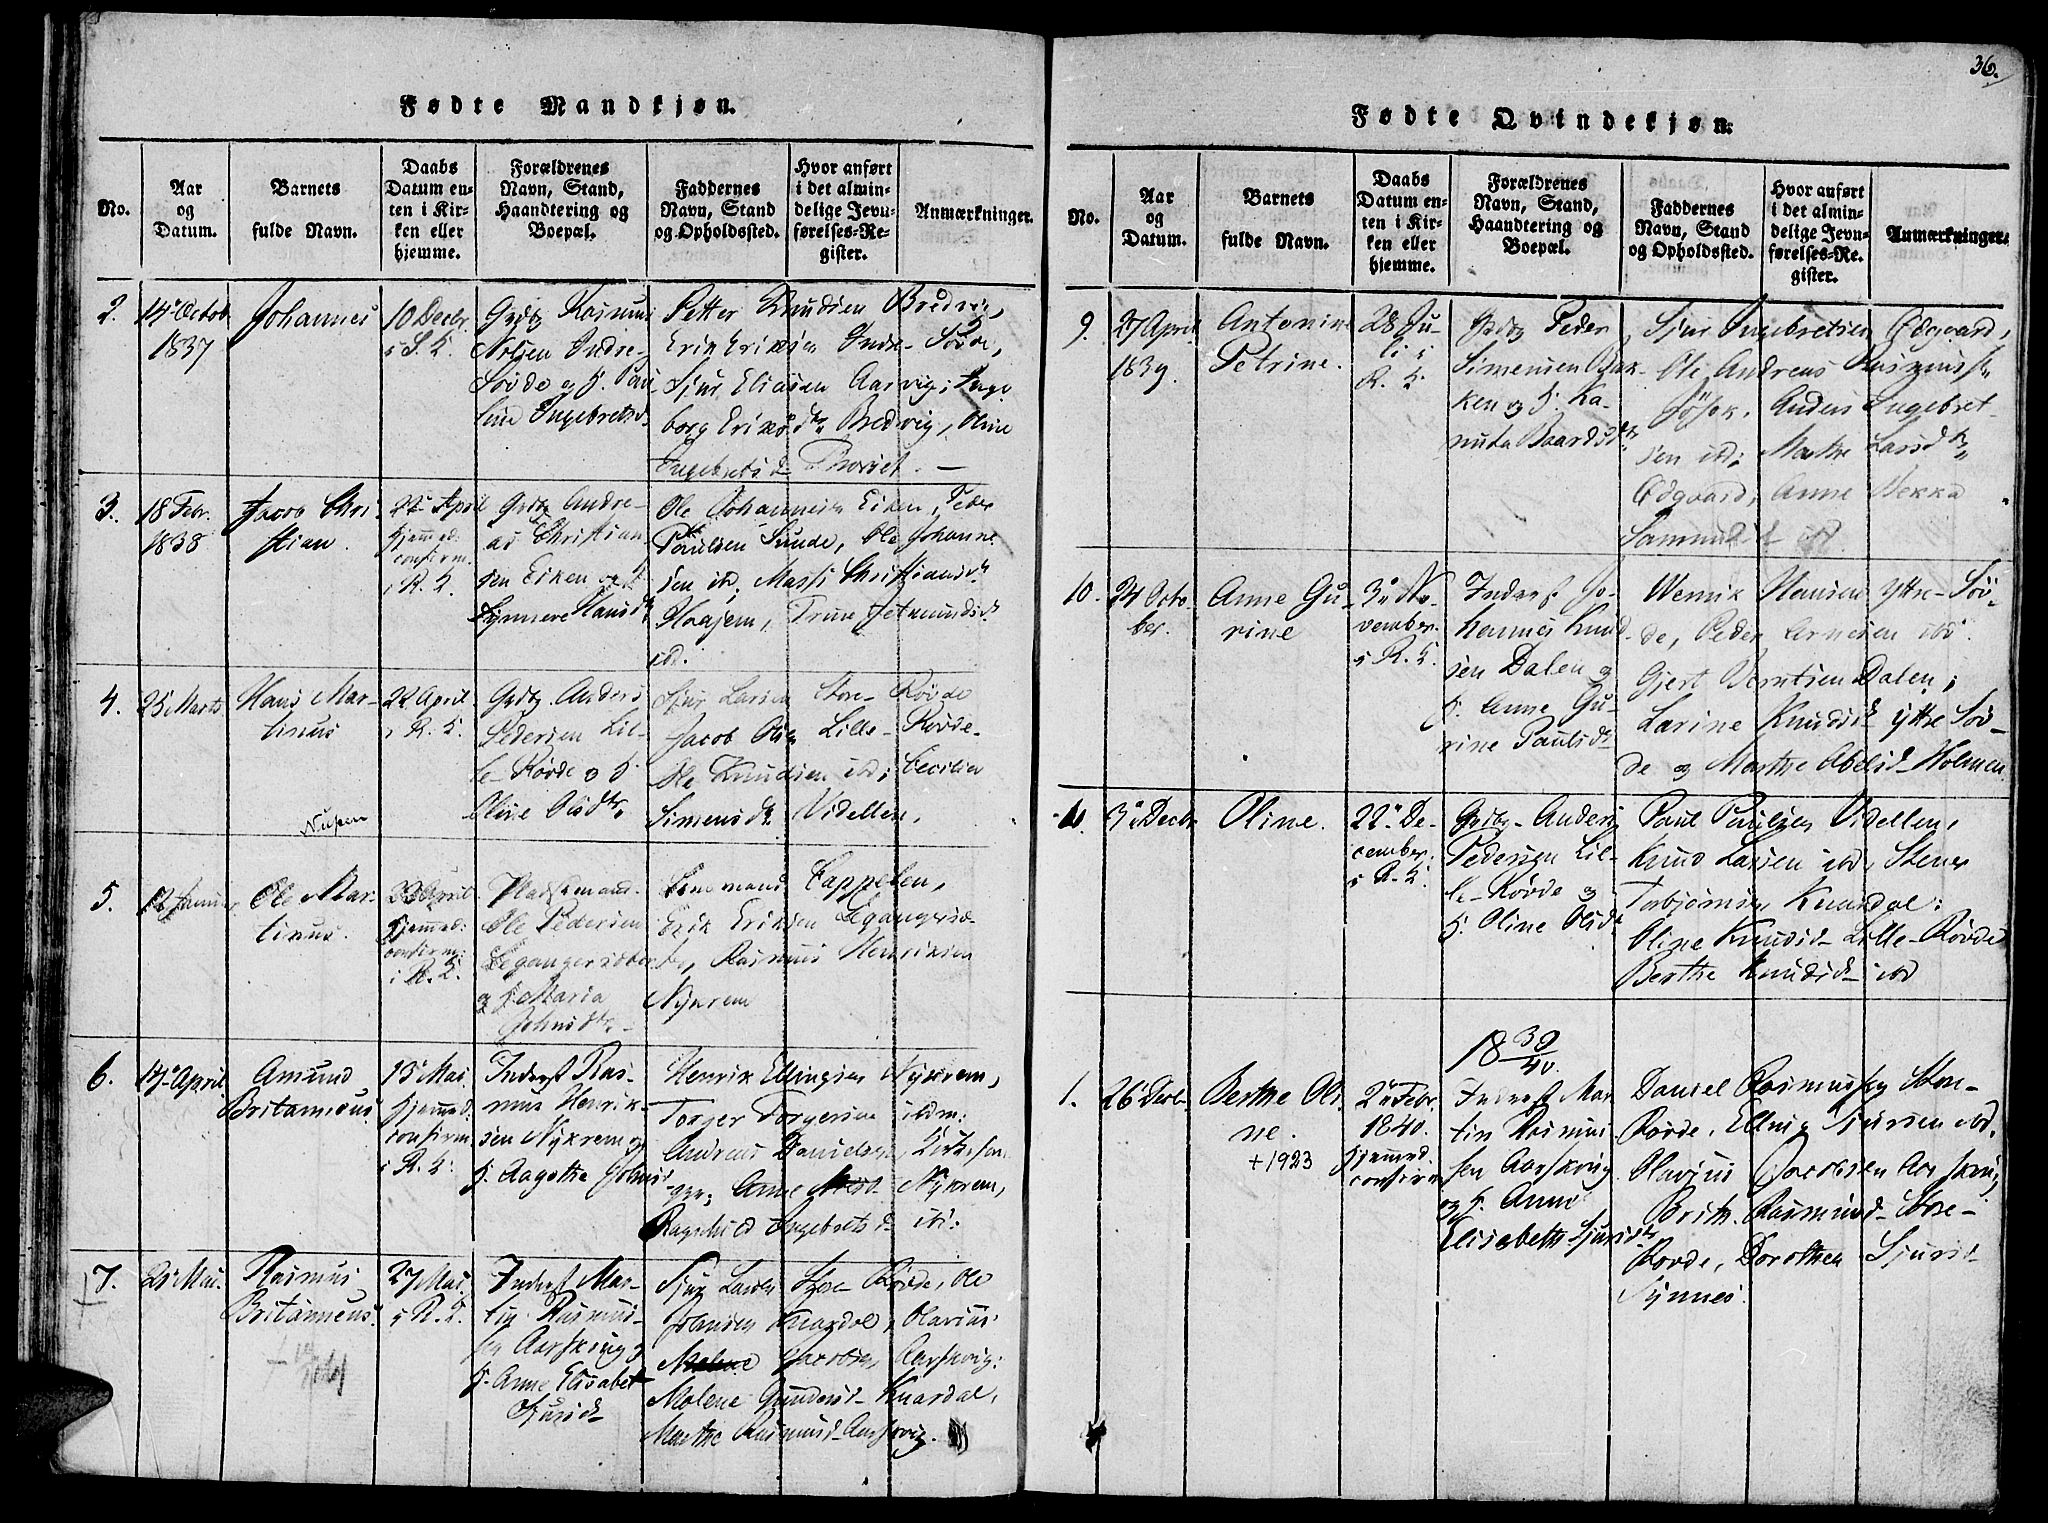 36.
Fødte Mandkjøn.
No.
Aar
og
Datum.
Barnets
fulde Navn.
Daabs
Datum en-
ten i Kir-
ken eller
hjemme.
Forældrenes
Navn, Stand,
Haandtering og
Boepæl.
Faddernes
Navn, Stand
og Opholdssted.
Hvor anført
i det almin-
delige Jevn-
førelses-Re-
gister.
Anmærkninger.
2.
14 Octob.
1837
Johannes
10 Decbr.
i S. K.
Grdbr Rasmus
Nilsen Indre-
Søvde og K. Pau
line Ingebretsd.
Petter Knudsen Bredvig,
Erik Eriksen Indre Søvde,
Sjur Eliasen Aarvig; Inge
borg Eriksdtr Bredvig, Oline
Ingebretsd
3.
18 Febr.
1838
Jacob Chri
stian.
22 April
hjemmed:
confirm.
i R. K.
Grdbr Andre-
as Christian
sen Eiken og K.
Synneve Hansdtr
Ole Johannesen Eiken, Peder
Paulsen Sunde, Ole Johanne
sen ibd, Massi Christiansdtr
Haajem, Trine
ibd.
4.
25 Marts
Hans Mar-
tinus
22 April
i R. K.
Grdbr Anders
Pedersen Lil-
le-Røvde og K.
Oline Olsdtr.
Sjur Larsen Store-Røvde
Jacob Olsen Lille-Røvde-
Ole Knudsen ibd; Cecilia
Simensdtr Videllen.
5.
12 Januar
Ole Mar-
tinus.
22 April
hjemmed:
confirm:
i R. K.
Pladsemand
Ole Pedersen
Legangersæter
og K. Maria
Johnsdtr
Lensmand Cappelen,
Erik Eriksen Legangersæ-
ter, Rasmus Henriksen
Nykrem
6.
14 April
Amund
Britannicus
13 Mai
hjemmed.
confirm
i R. K.
Inderst Ras-
mus Henrik-
sen Nykrem og
K. Aagothe Johnsd
Henrik Ellingsen Nykrem,
Torger Torgersen ibdm:
Andreas Danielsen,
Anne Nykrem,
Ragnhild Ingebretsd ibd:
7.
25 Mai.
Rasmus
Britannicus.
27 Mai
i R. K.
Inderst Mar-
tin Rasmus-
sen Aarskoug og
K. Anne Elisabet
Sjursd
Sjur Larsen Store Røvde, Ole
Johnsen Knardal, Olavius
Jacobsen Aarskoug:
Malene Gundersd Knardal,
Marthe Rasmusd Aarskoug.
Fødte Qvindekjøn.
No.
Aar
og
Datum.
Barnets
fulde Navn.
Daabs
Datum en-
ten i Kir-
ken eller
hjemme.
Forældrenes
Navn, Stand,
Haandtering og
Boepæl.
Faddernes
Navn, Stand
og Opholdssted.
Hvor anført
i det almin-
delige Jevn-
førelses-Re-
gister.
Anmærkninger.
9.
27 April
1839.
Antonine
Petrine.
28 Ju-
li i
R. K.
Grdbr Peder
Simensen Bak-
ken og K. Ka-
nuta Baardsdtr
Sjur Ingebretsen Ødgaard,
Ole Andreas Rasmuss
Anders Ingebret-
sen ibd; Marthe Larsdtr
Ødgaard, Anne Rekka
Samuelsd ibd
10.
24 Octo-
ber.
Anne Gu-
rine
3 No-
vember.
i R. K.
Inderst Jo-
hannes Knud-
sen Dalen og
K. Anne Gu-
rine Paulsd
Wemik Hansen Ytre-Søv-
de, Peder Arnesen ibd.
Gjert Berntsen Dalen;
Larine Knudsd Ytre Søv-
de og Marthe Abelsd Holmen
3 Decbr
Oline.
22 De-
cember.
i R. K.
Grdbr Anders
Pedersen Lil-
le-Røvde og
K. Oline Olsd
Paul Paulsen Videllen,
Knud Larsen ibd, Stener
Torbjørnsen Knardal:
Oline Knudsd Lille-Røvde
Berthe Knudsd ibd
18 39/40.
1.
26 Decbr
Berthe Oli
ne.
+ 1923
2 Febr.
1840.
hjemmed.
confirm
Inderst Mar
tin Rasmus
sen Aarskoug
og K. Anne
Elisabeth Sjursdtr
Daniel Rasmussen Store-
Røvde, Elling Sjursen ibd.
Olavius Jacobsen Aarskoug;
Brith. Rasmusd Store-
Røvde, Dorothea Sjursd
Synnes.